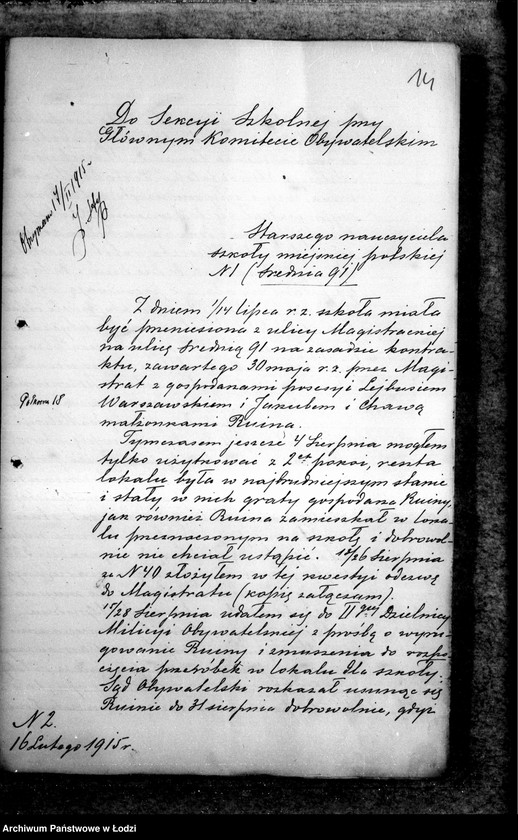 14
Do Sekcyi Szkolnej przy
Głównym Komitecie Obywatelskim
Otrzymano 17/II 1915 r.
Starszego nauczyciela
szkoły miejskiej polskiej
N1 (Średnia 91)
Z dniem 1/14 lipca r.z. szkoła miała
być przeniesiona z ulicy Magistrackiej
na ulicę Średnią 91 na zasadzie kontra-
ktu, zawartego 30 maja r.z. przez Magi-
strat z gospodarzami posesyi Lejbusiem
Warszawskim i Jakubem i Chawą
małżonkami Ruina.
Tymczasem jeszcze 4 Sierpnia mogłem
tylko użytkować z 2 ch pokoi, reszta
lokalu była w najbrudniejszym stanie
i stały w nich graty gospodarza Ruiny,
jak również Ruina zamieszkał w loka-
lu przeznaczonym na szkołę i dobrowol-
nie nie chciał ustąpić. 13/26 Sierpnia
za N 40 złożyłem w tej kwestyi odezwę
do Magistratu (kopię załączam).
15/28 Sierpnia udałem się do II giej Dzielnicy
Milicyi Obywatelskiej z prośbą o wyru-
gowanie Ruiny i zmuszenia do rozpo-
częcia przeróbek w lokalu dla szkoły.
Sąd Obywatelski rozkazał usunąć się
Ruinie do 31 sierpnia dobrowolnie, gdyż
N 2.
16 Lutego 1915 r.
Archiwum Państwowe w Łodzi